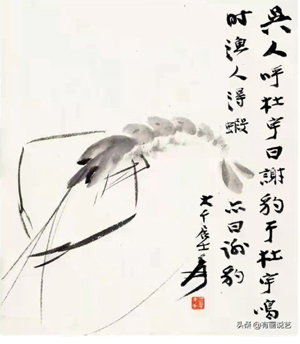 吳人呼杜宇曰謝豹于杜宇鳴
时漁人得蝦亦曰謝豹
大千居士爰
头条 @有画说艺